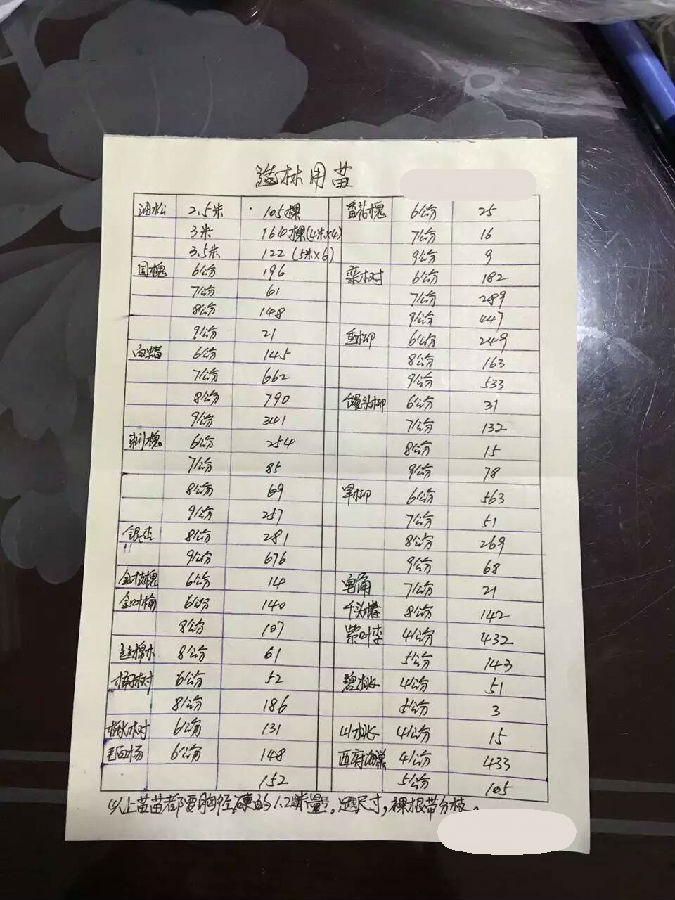 造林用苗
油松 2.5米 105棵
3米 160棵(4米×4)
3.5米 122(5米×6)
国槐 6公分 196
7公分 61
8公分 148
9公分 21
白蜡 6公分 145
7公分 662
8公分 790
9公分 341
刺槐 6公分 254
7公分 85
8公分 69
9公分 257
银杏 8公分 281
9公分 676
金枝槐 6公分 14
金叶榆 6公分 140
8公分 107
8公分 61
6公分 52
8公分 186
6公分 131
6公分 148
152
6公分 25
7公分 16
9公分 9
栾树 6公分 182
7公分 289
9公分 447
垂柳 6公分 249
8公分 163
9公分 533
馒头柳 6公分 31
7公分 132
8公分 15
9公分 78
旱柳 6公分 563
7公分 51
8公分 269
9公分 68
皂角 7公分 21
千头椿 8公分 142
紫叶李 4公分 432
5公分 143
碧桃 4公分 51
5公分 3
山桃 4公分 15
西府海棠 4公分 433
5公分 105
以上苗苗都要胸径,的1.2米量,足尺寸,裸根带分枝。